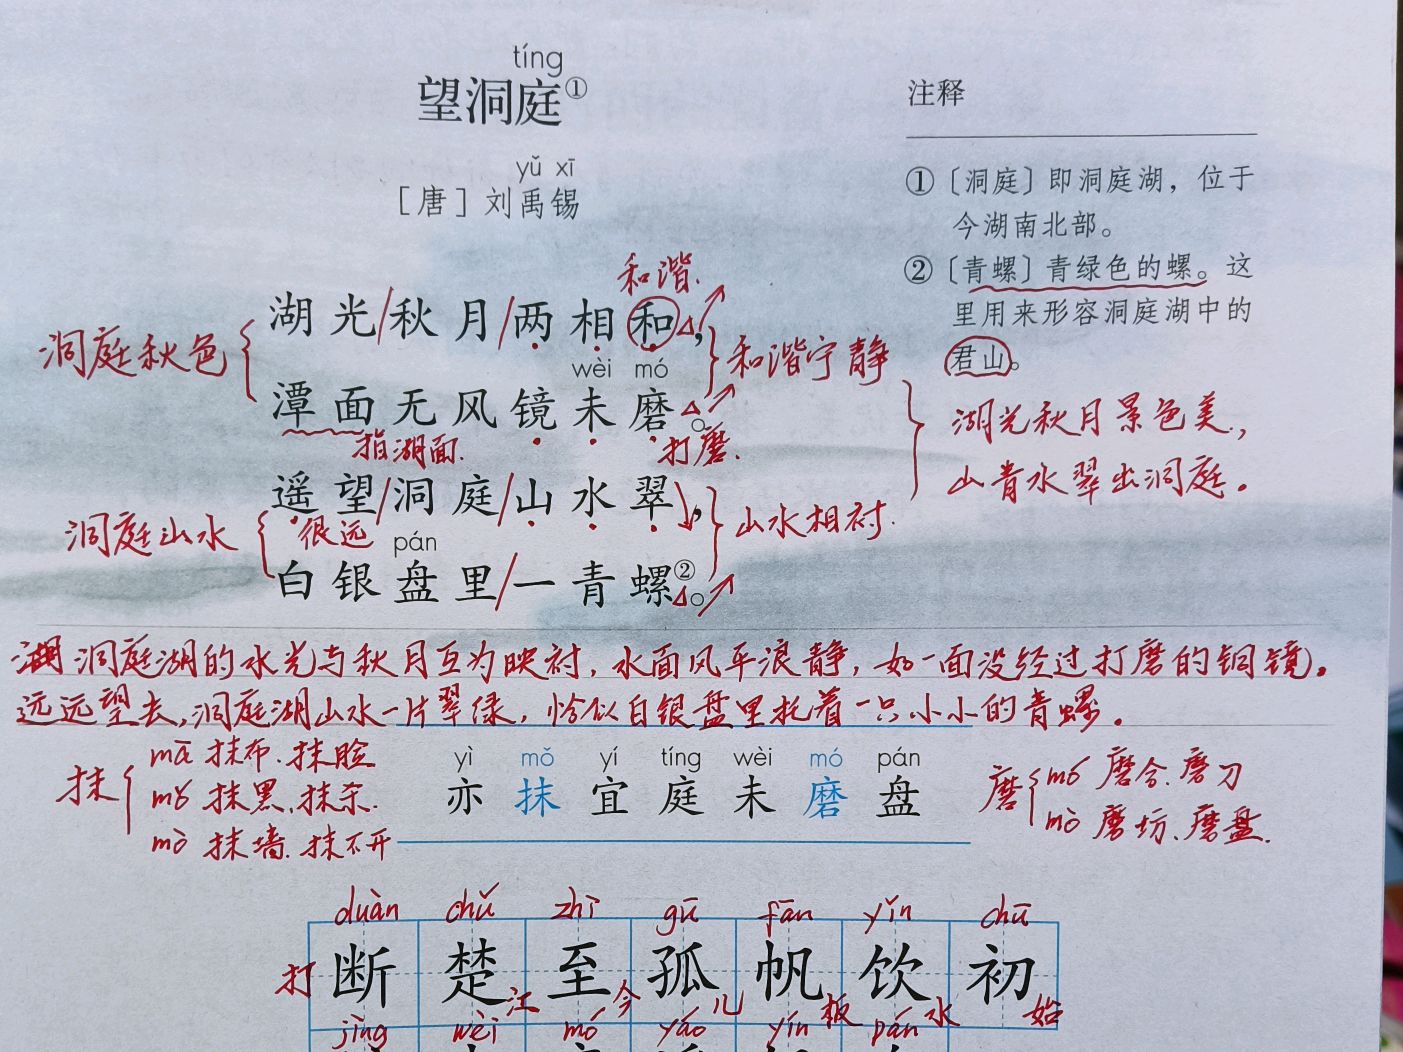 tíng
望洞庭①
yǔ xī
［唐］刘禹锡
注释
①〔洞庭〕即洞庭湖，位于
今湖南北部。
②〔青螺〕青绿色的螺。这
里用来形容洞庭湖中的
君山。
和谐.
湖光/秋月/两相和，
洞庭秋色
和谐宁静
wèi mó
潭面无风镜未磨。
指湖面.
打磨.
湖光秋月景色美,
山青水翠出洞庭.
遥望/洞庭/山水翠，
洞庭山水
很远
山水相衬.
pán
白银盘里/一青螺②。
洞庭湖的水光与秋月互为映衬,水面风平浪静,如一面没经过打磨的铜镜。
远远望去,洞庭湖山水一片翠绿,恰似白银盘里托着一只小小的青螺.
抹
mā 抹布.抹脸
mǒ 抹黑.抹杀.
mò 抹墙.抹不开
yì mǒ yí tíng wèi mó pán
亦 抹 宜 庭 未 磨 盘
磨
mó 磨合.磨刀
mò 磨坊.磨盘.
duàn chǔ zhì gū fān yǐn chū
断 楚 至 孤 帆 饮 初
打 江 今 儿 板 水 始
jìng wèi mó yáo yín pán